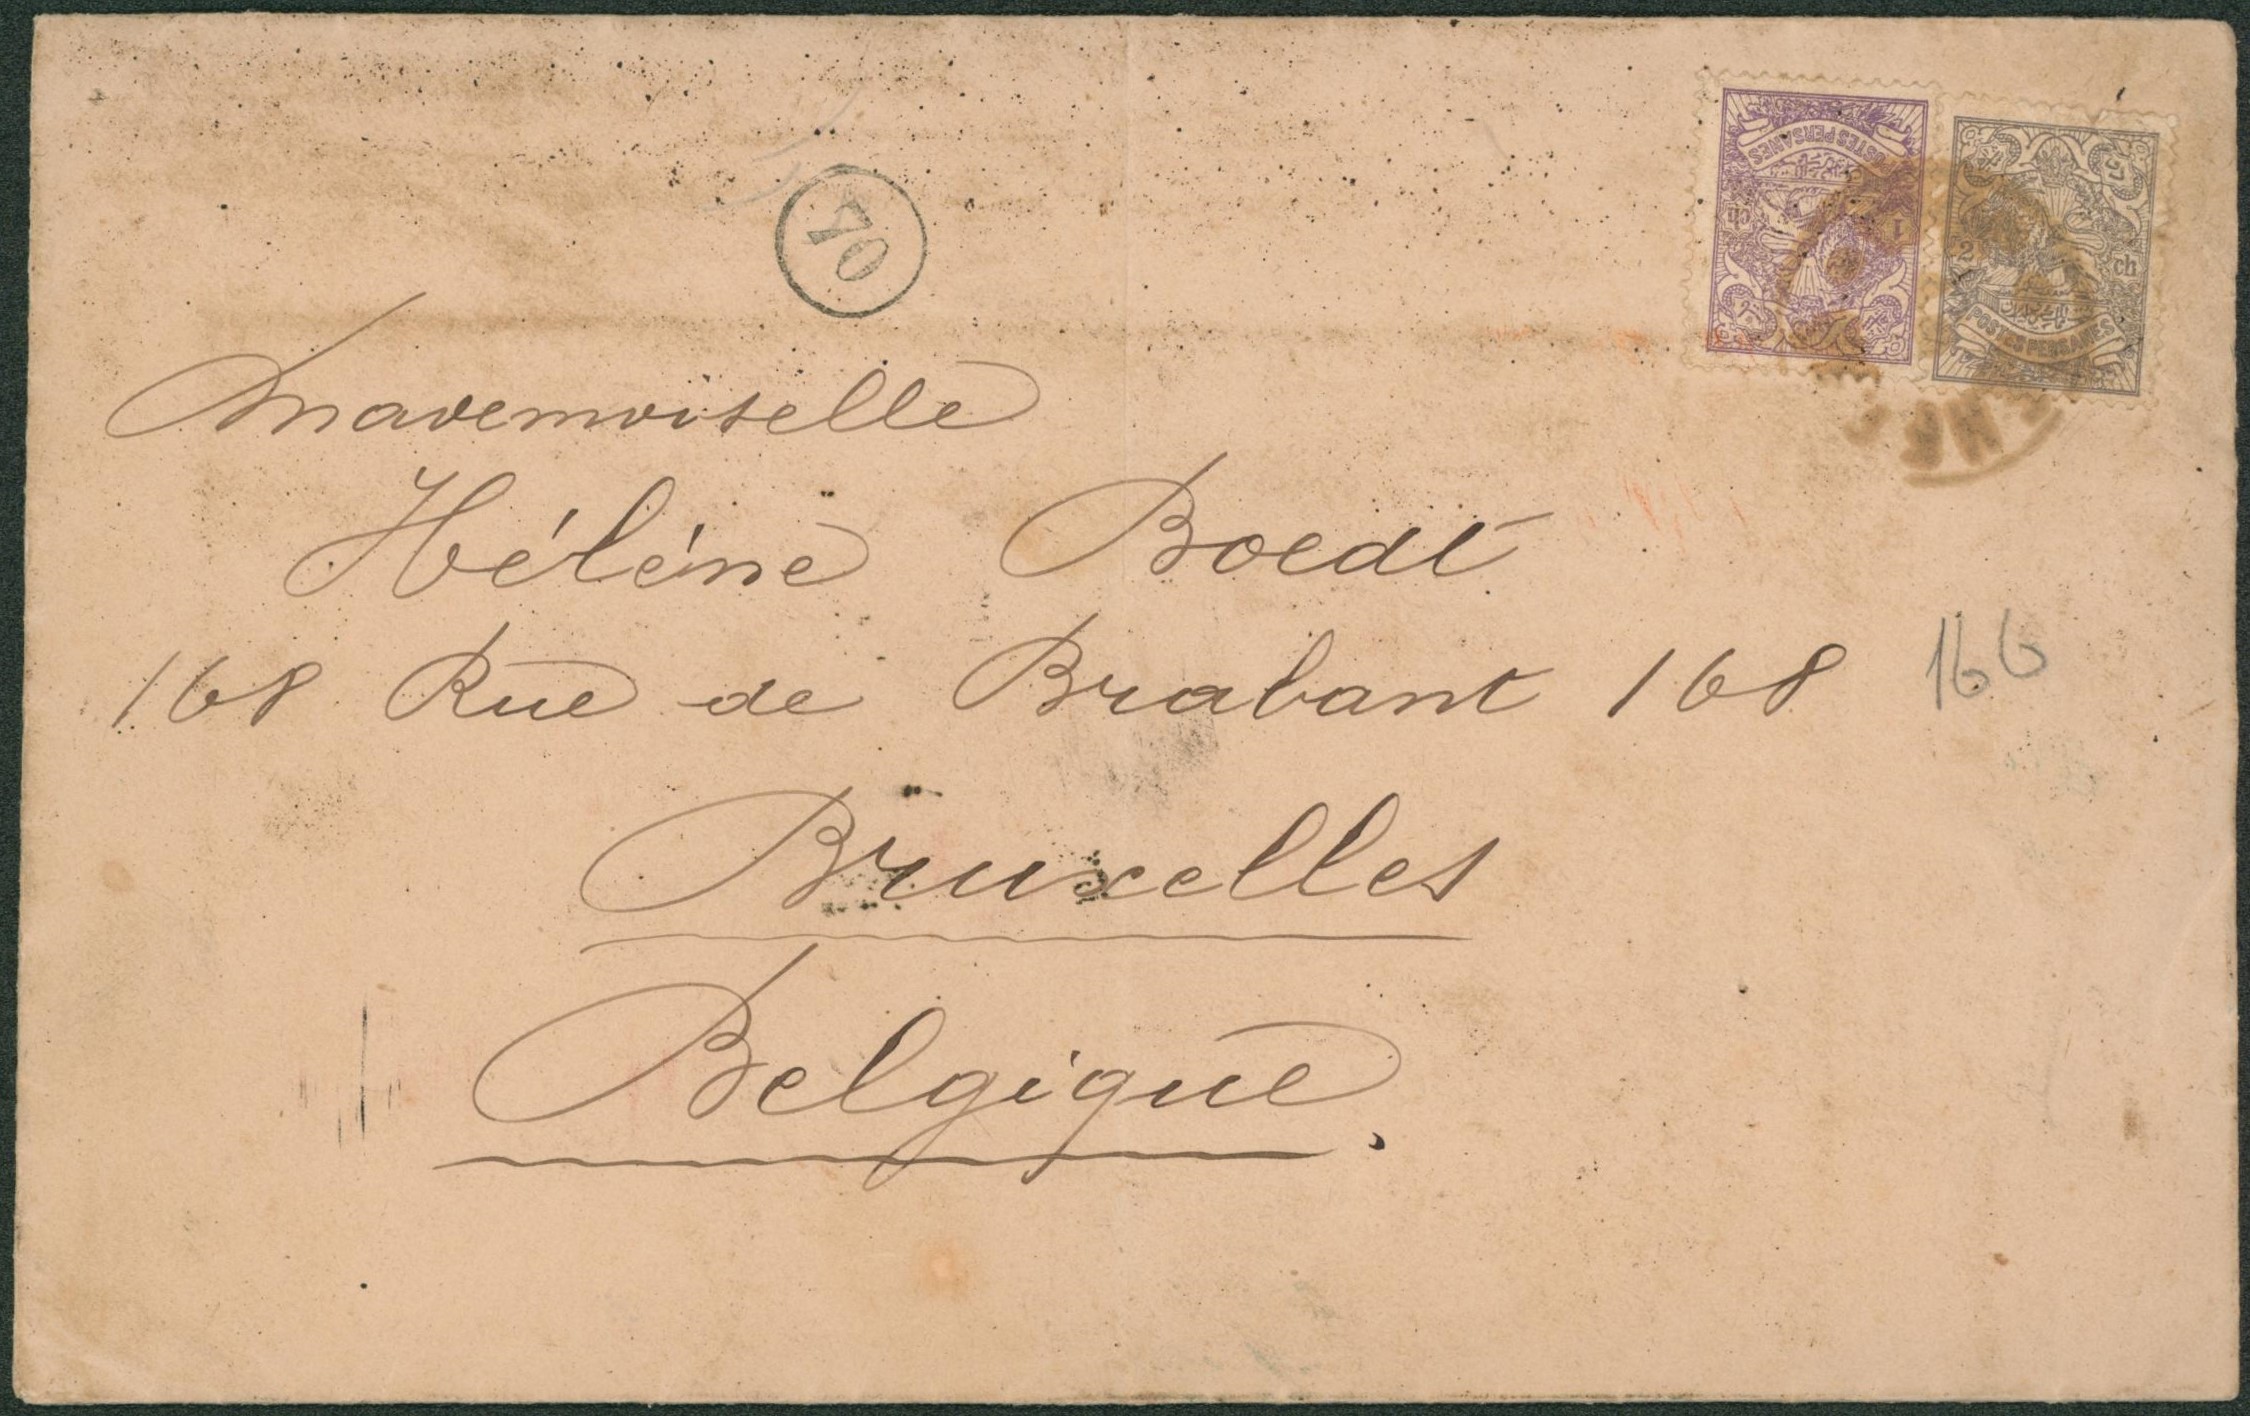 70
POSTES PERSANES
1 ch
2 ch
POSTES PERSANES
Mademoiselle
Héléne Boedt
168 Rue de Brabant 168
166
Bruxelles
Belgique.